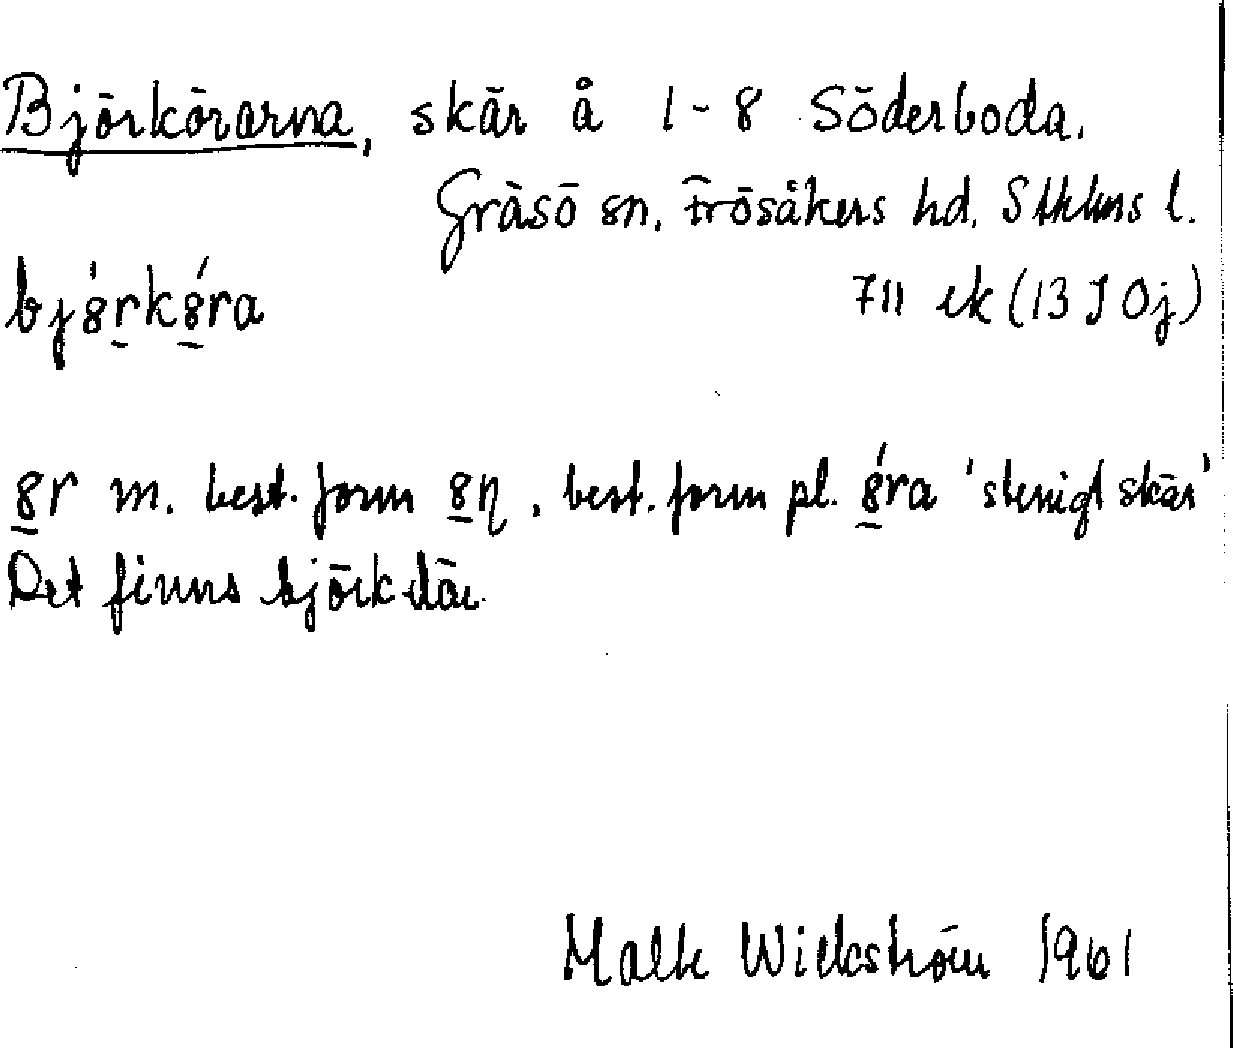 Björkörarna, skär å 1-8 Söderboda.
Gräsö sn, Frösåkers hd, Sthlms l.
bj8́rk8́ra 711 ek (13 I Oj)
8r m. best. form 8η, best. form pl. 8́ra 'stenigt skär'
Det finns björk där.
Malte Wickström 1961